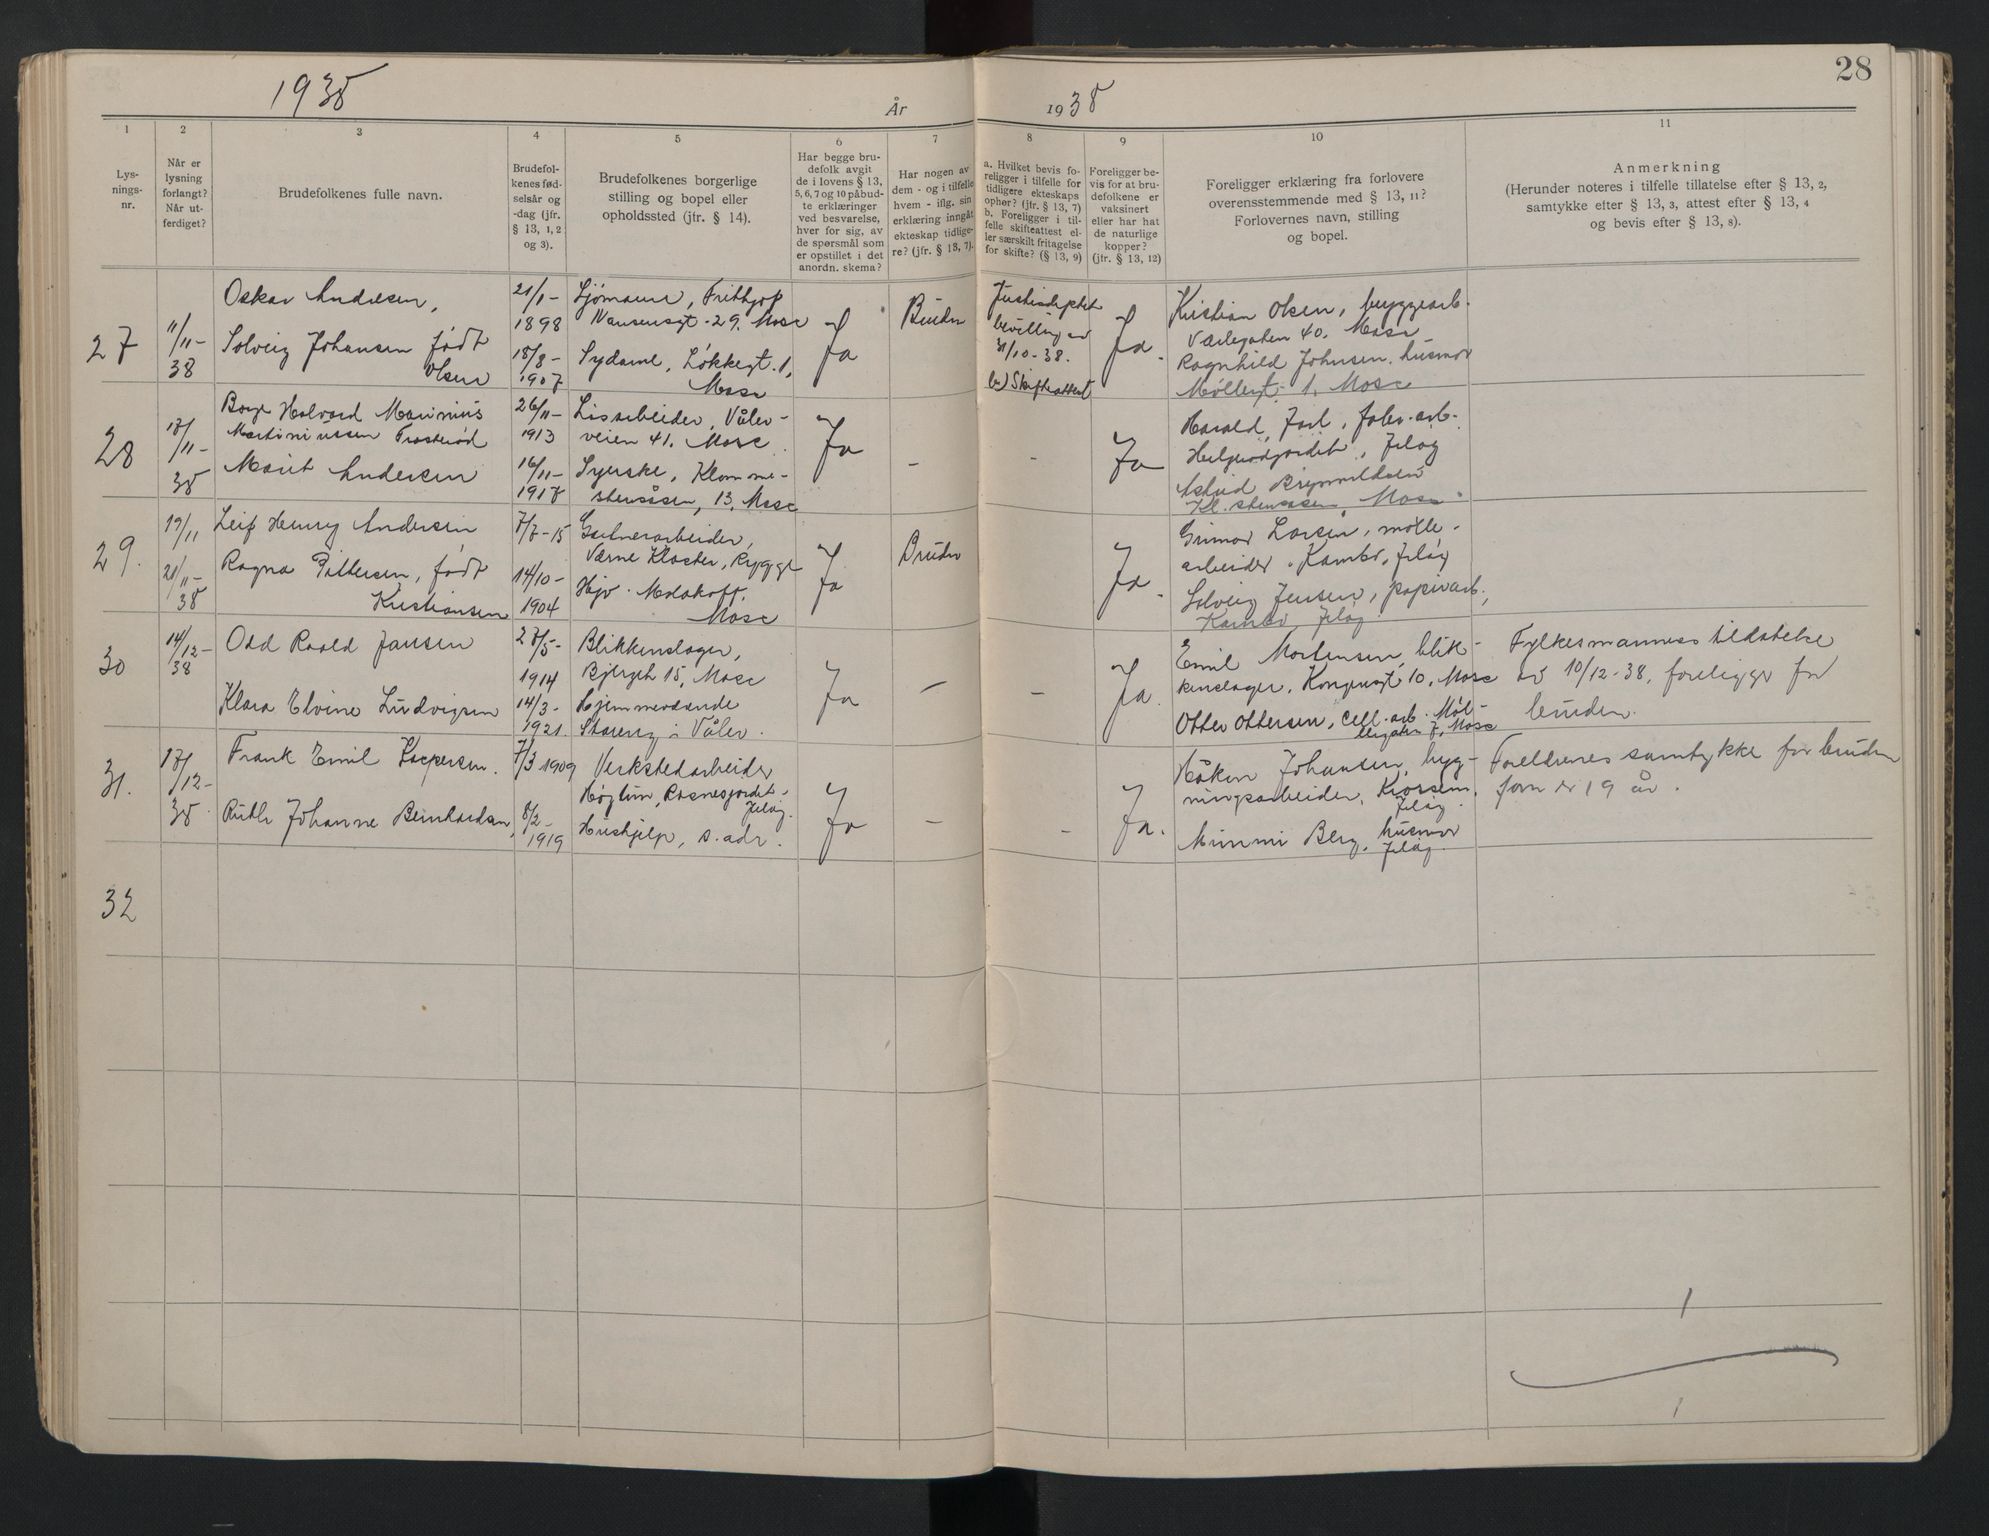 28
1938
År
1938
1
2
3
4
5
6
7
8
9
10
11
Lys-
nings-
nr.
Når er
lysning
forlangt?
Når ut-
ferdiget?
Brudefolkenes fulle navn.
Brudefol-
kenes fød-
selsår og
-dag (jfr.
§ 13, 1, 2
og 3).
Brudefolkenes borgerlige
stilling og bopel eller
opholdssted (jfr. § 14).
Har begge bru-
defolk avgit
de i lovens § 13,
5, 6, 7 og 10 påbud-
te erklæringer
ved besvarelse,
hver for sig, av
de spørsmål som
er opstillet i det
anordn. skema?
Har nogen av
dem - og i tilfelle
hvem - iflg. sin
erklæring inngått
ekteskap tidlige-
re? (jfr. § 13, 7).
a. Hvilket bevis fo-
religger i tilfelle for
tidligere ekteskaps
ophør? (jfr. § 13, 7)
b. Foreligger i til-
felle skifteattest el-
ler særskilt fritagelse
for skifte? (§ 13, 9)
Foreligger be-
vis for at bru-
defolkene er
vaksinert
eller har hat
de naturlige
kopper?
(jfr. § 13, 12)
Foreligger erklæring fra forlovere
overensstemmende med § 13, 11?
Forlovernes navn, stilling
og bopel.
Anmerkning
(Herunder noteres i tilfelle tillatelse efter § 13, 2,
samtykke efter § 13, 3, attest efter § 13, 4
og bevis efter § 13, 8).
27
11/11-
38
Oskar Andresen,
Solveig Johansen født
Olsen
21/1-
1898
18/8-
1907
Sjømann, Frithjof
Nansensgt. 29. Moss
Sydame, Løkkegt. 1,
Moss
Ja
Bruden
bevilling av
31/10-38.
b) Skifteattest
Ja.
Kristian Olsen, bryggearb.
Varlegaten 40. Moss
Ragnhild Johnsen, husmor
Møllergt. 1, Moss
28
18/11-
38
Borge Halvard Marinius
Martiniussen Trosterød
Marit Andersen
26/11-
1913
16/11-
1918
Lisarbeider, Våler-
veien 41. Moss
Syerske, Klomme-
stensåsen, 13, Moss
Ja
-
-
Ja
Harald Jarl, fabr. arb.
Helgerødjordet, Jeløy
Astrid Brynmildsen
Kl. stensåsen, Moss
29.
19/11
21/11-
38
Leif Henry Andersen
Ragna Pettersen, født
Kristiansen
7/7-15
14/10-
1904
Gartnerarbeider,
Værne Kloster, Rygge
Hjv. Melakoff.
Moss
Ja
Bruden
Ja.
Gunnar Larsen, mølle-
arbeider. Kambo, Jeløy
Solveig Jensen, papirarb.,
Kambo, Jeløy.
30
14/12-
38
Odd Roald Jansen
Klara Elvine Ludvigsen
27/5-
1914
14/3-
1921.
Blikkenslager,
Bjerget 15, Moss
Hjemmeværende
Støreng i Våler.
Ja
-
-
Ja.
Emil Mortensen, blik-
kenslager, Kongensgt 10, Moss
Otter Ottersen, cell. arb. Møl-
lergaten 7, Moss
Fylkesmannens tillatelse
av 10/12-38, foreligger for
bruden.
31.
17/12-
38
Frank Emil Kaspersen.
Ruth Johanne Bernhardsen,
7/3 1909
8/2-
1919
Verkstedarbeider
Høgtun, Rosnesjordet-
Jeløy.
Hushjelp, s. adr.
Ja
-
-
Ja.
Håkon Johansen, byg-
ningsarbeider, Krossern,
Jeløy.
Mimmi Berg, husmor
Jeløy.
Foreldrenes samtykke for bruden
som er 19 år.
32